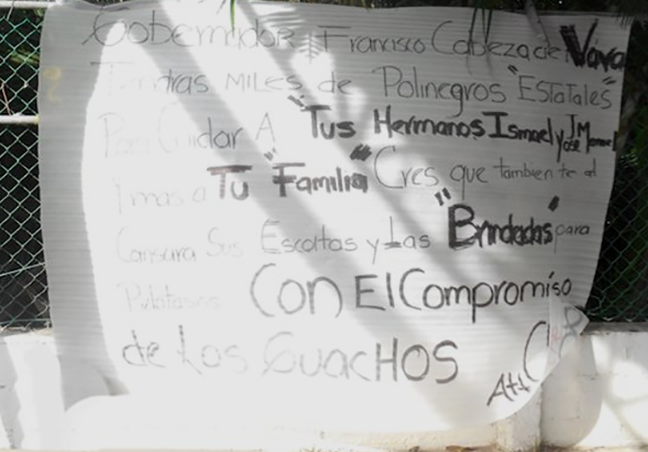 Gobernador Francisco Cabeza de Vava
Tendras MILES de Polinegros "ESTaTaLes"
Para Cuidar A "Tus Hermanos Ismael y
y mas a Tu "Familia" Cres que tambien te al
Cansara Sus Escoltas y Las "Brindadas" para
CON El Compromiso
de Los GuacHOS
Att